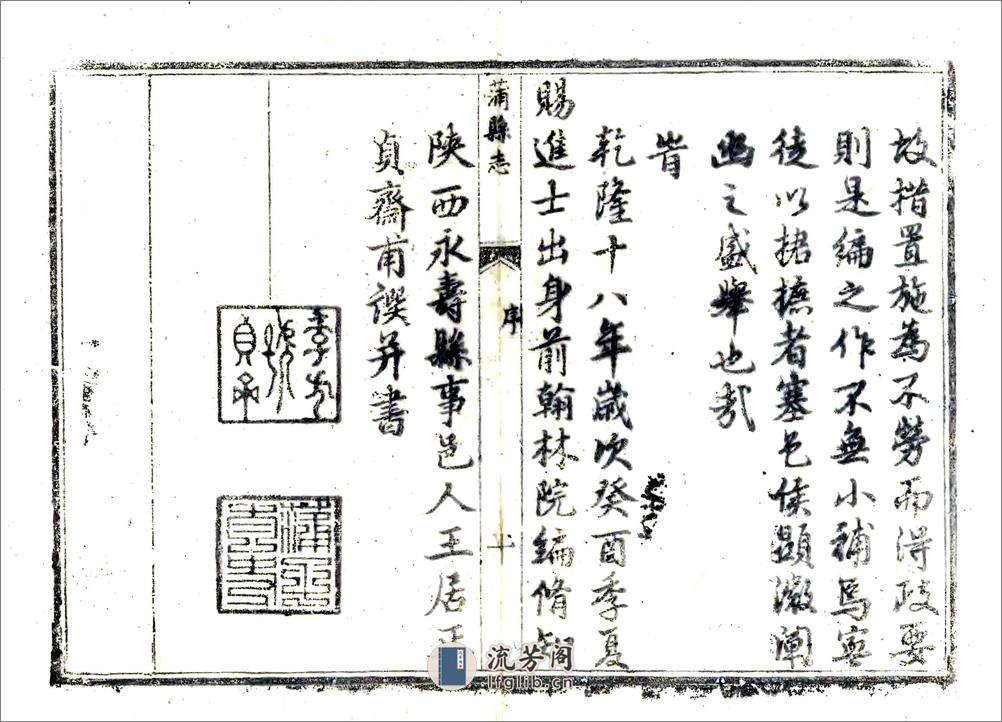 故措置施為不勞而得政要
則是編之作不無小補焉寧
徒以捃摭者塞邑侯顯微闡
幽之盛舉也哉
峕
乾隆十八年歲次癸酉季夏
賜進士出身前翰林院編脩知
蒲縣志
序
陝西永壽縣事邑人王居正
貞齋甫譔并書
流芳阁
lfglib.cn